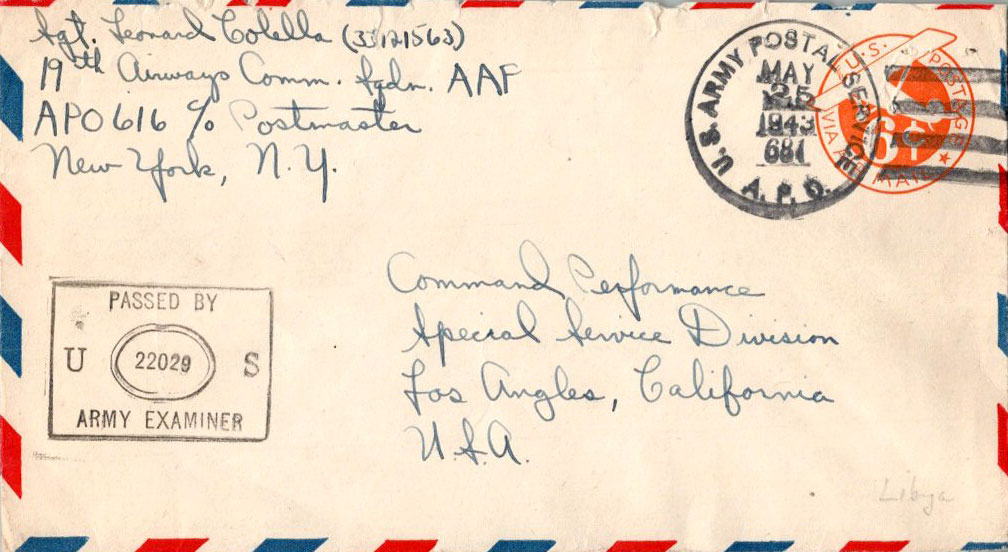 Sgt. Leonard Colella (33121563)
19th Airways Comm. Sqdn. AAF
APO 616 c/o Postmaster
New York, N.Y.
U.S. ARMY POSTAL SERVICE
MAY
25
1943
681
A.P.O.
U.S. POSTAGE
6¢
VIA AIR MAIL
Command Performance
Special Service Division
Los Angles, California
U.S.A.
PASSED BY
U 22029 S
ARMY EXAMINER
Libya